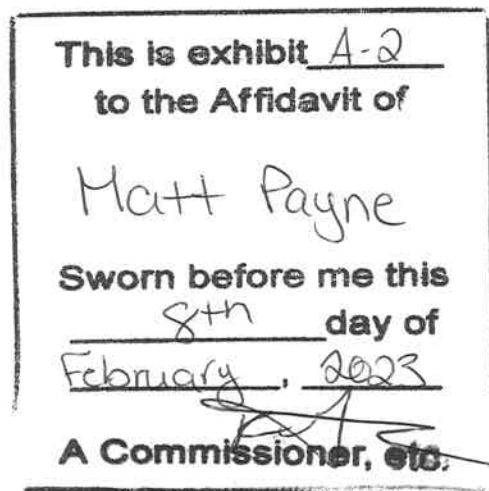 This is exhibit A-2
to the Affidavit of
Matt Payne
Sworn before me this
8th day of
February, 2023
A Commissioner, etc.